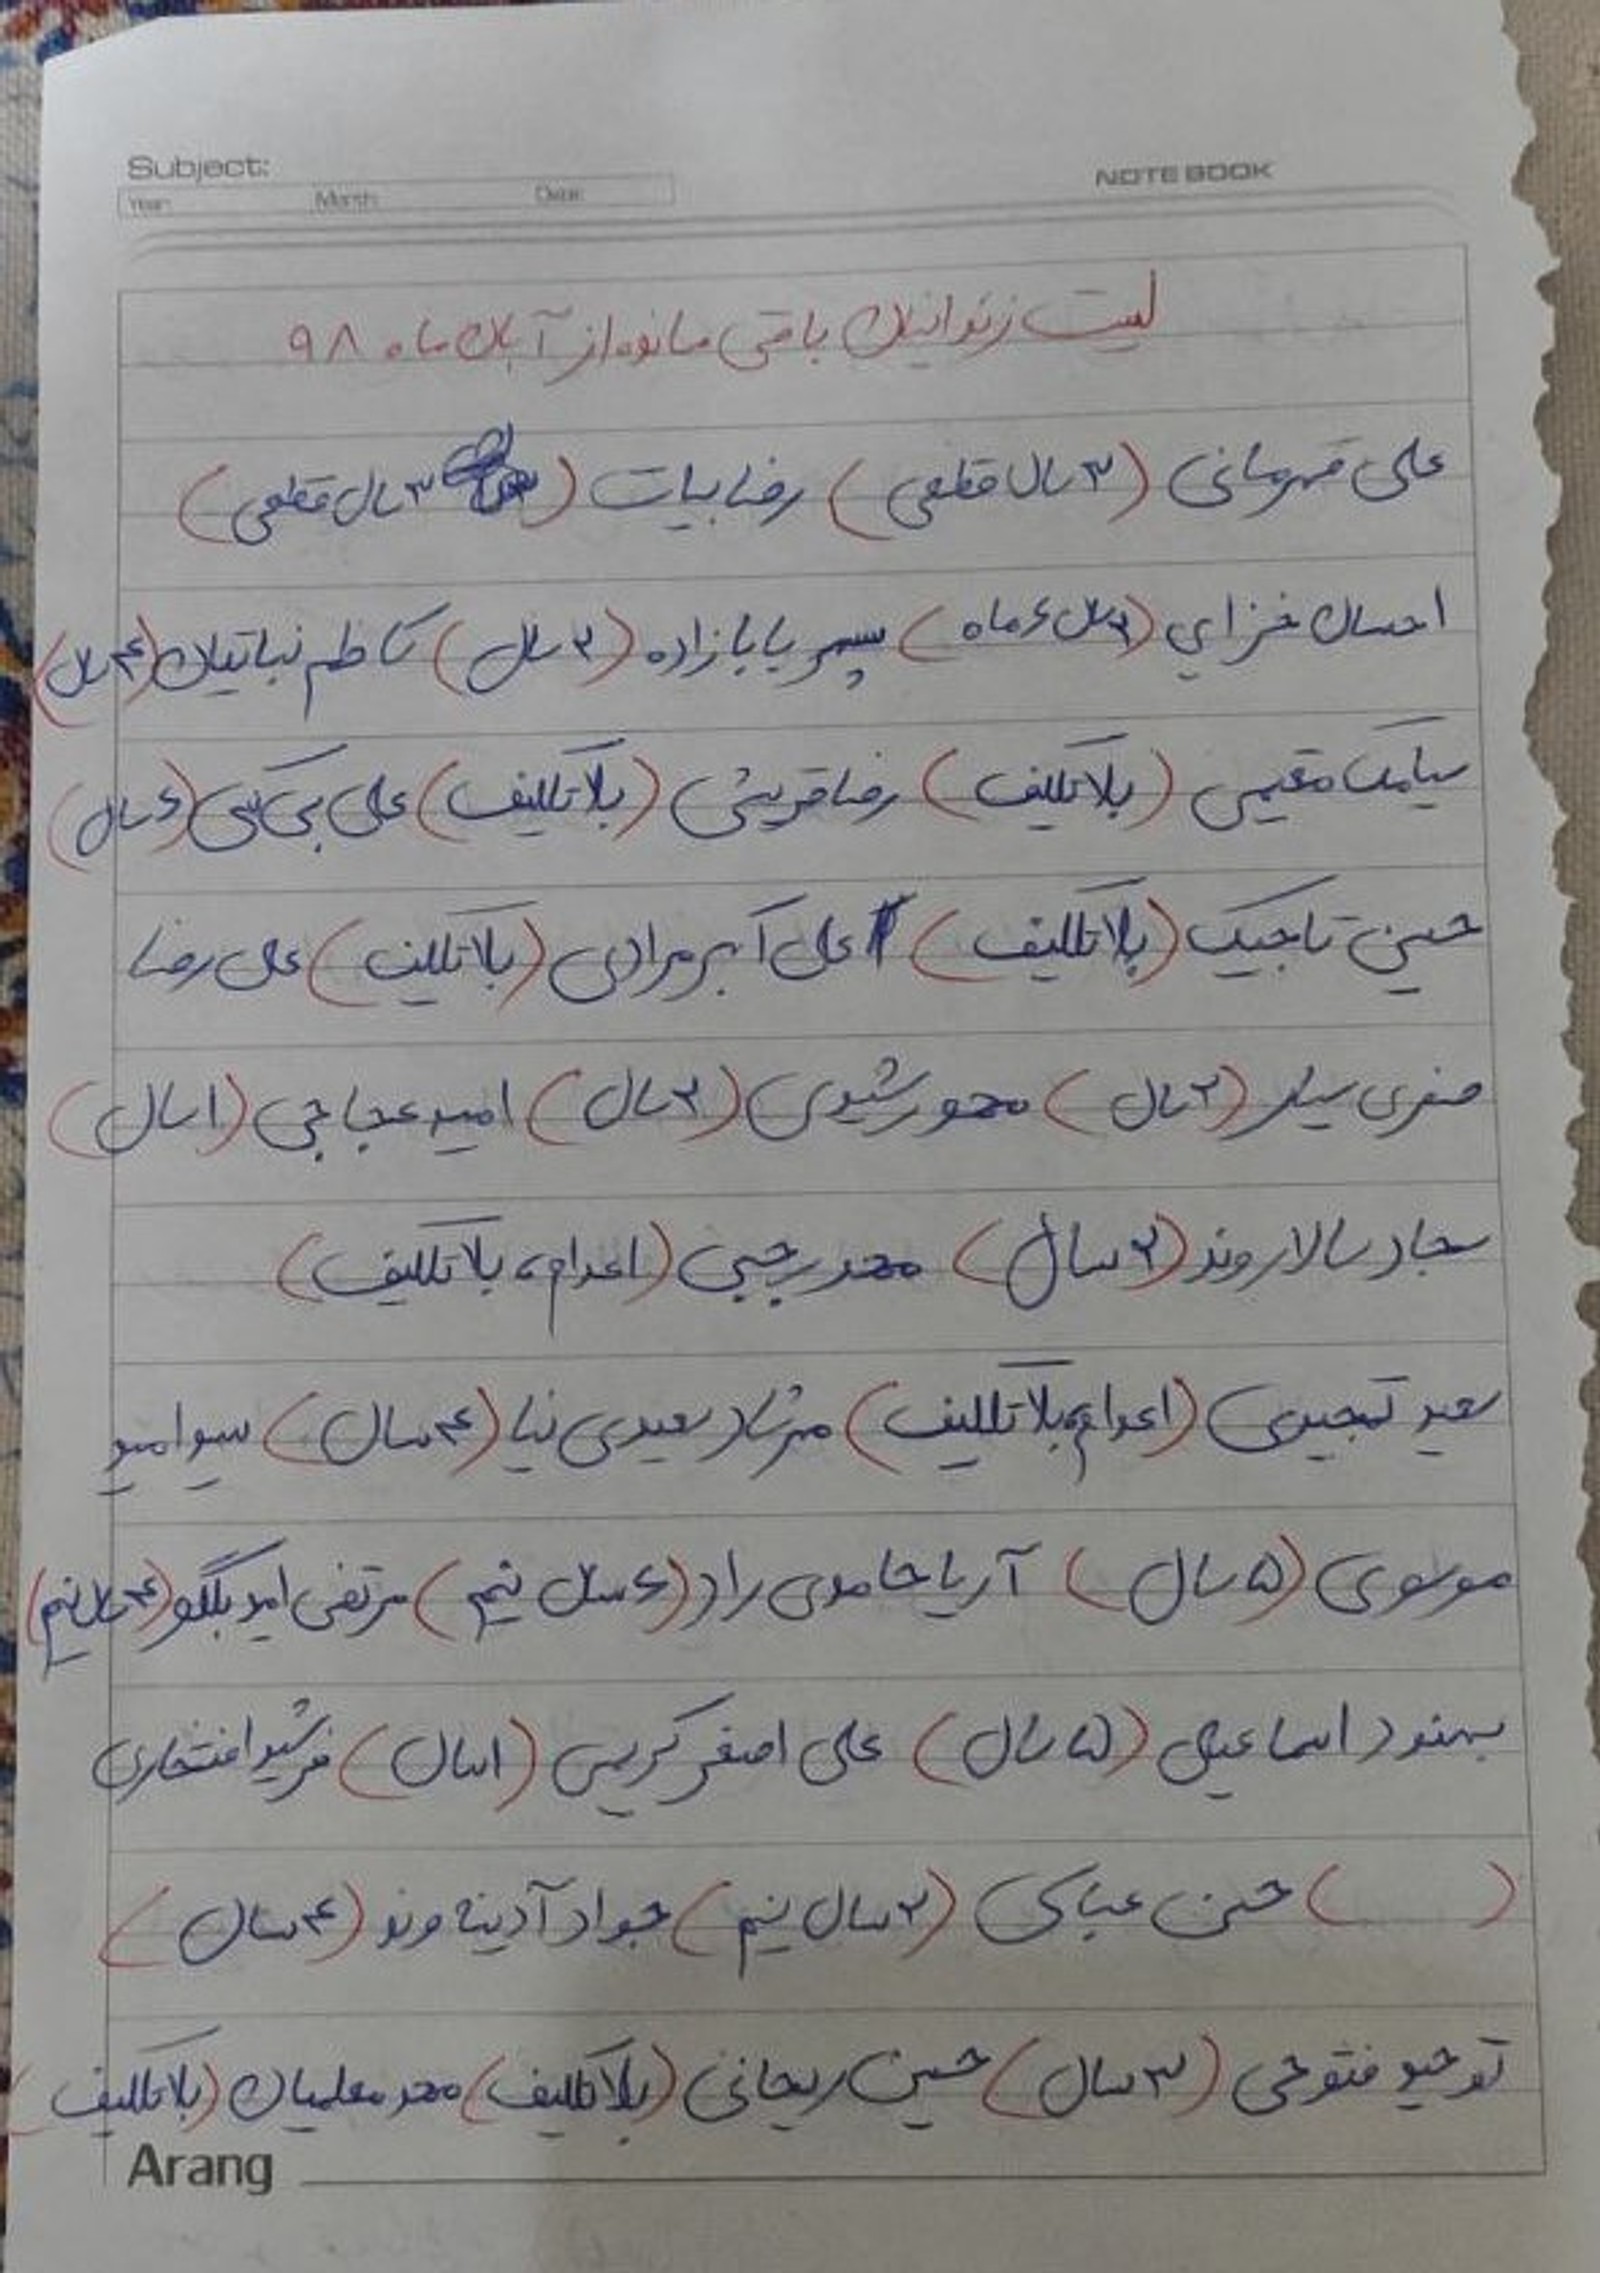 Subject:
NOTE BOOK
Year: Month: Date:
لیست زندانیان باقی مانده از آبان ماه ۹۸
علی قهرمانی (۳سال قطعی) رضا بیات (۳سال قطعی)
احسان خزایی (سال ۶ماه) سپهر بابازاده (۳سال) کاظم نباتیان (۴سال)
سیامک مقیمی (بلاتکلیف) رضا قریشی (بلاتکلیف) علی بی کسی (۶سال)
حسین تاجیک (بلاتکلیف) علی اکبر مرادی (بلاتکلیف) علی رضا
صفری سیار (۲سال) محمد رشیدی (۳سال) امید عجاجی (۱سال)
سجاد سالاروند (۲سال) محمد رجبی (اعدام، بلاتکلیف)
سعید تمجیدی (اعدام، بلاتکلیف) مرشاد سعیدی نیا (۴سال) سید امید
موسوی (۵سال) آریا حامدی راد (۶سال نیم) مرتضی امید بگلو (۴سال نیم)
بهنود اسماعیلی (۵سال) علی اصغر کریمی (۱سال) فرشید افتخاری
( ) حسن عباسی (۲سال نیم) جواد آدینه وند (۴سال)
توحید فتوحی (۳سال) حسین ریحانی (بلاتکلیف) محمد معلمیان (بلاتکلیف
Arang